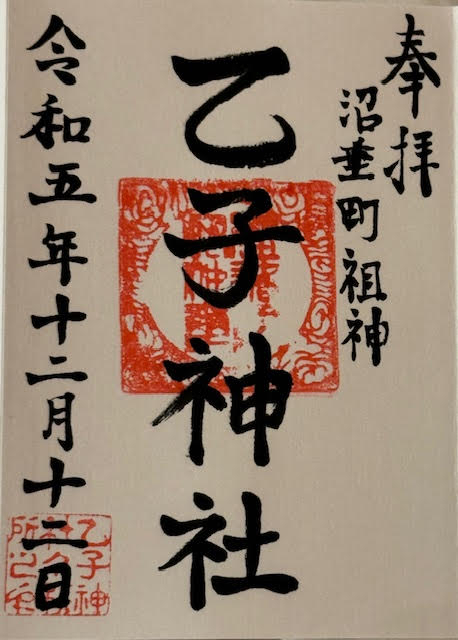 奉拝
沼垂町祖神
乙子神社
令和五年十二月十二日
乙子神